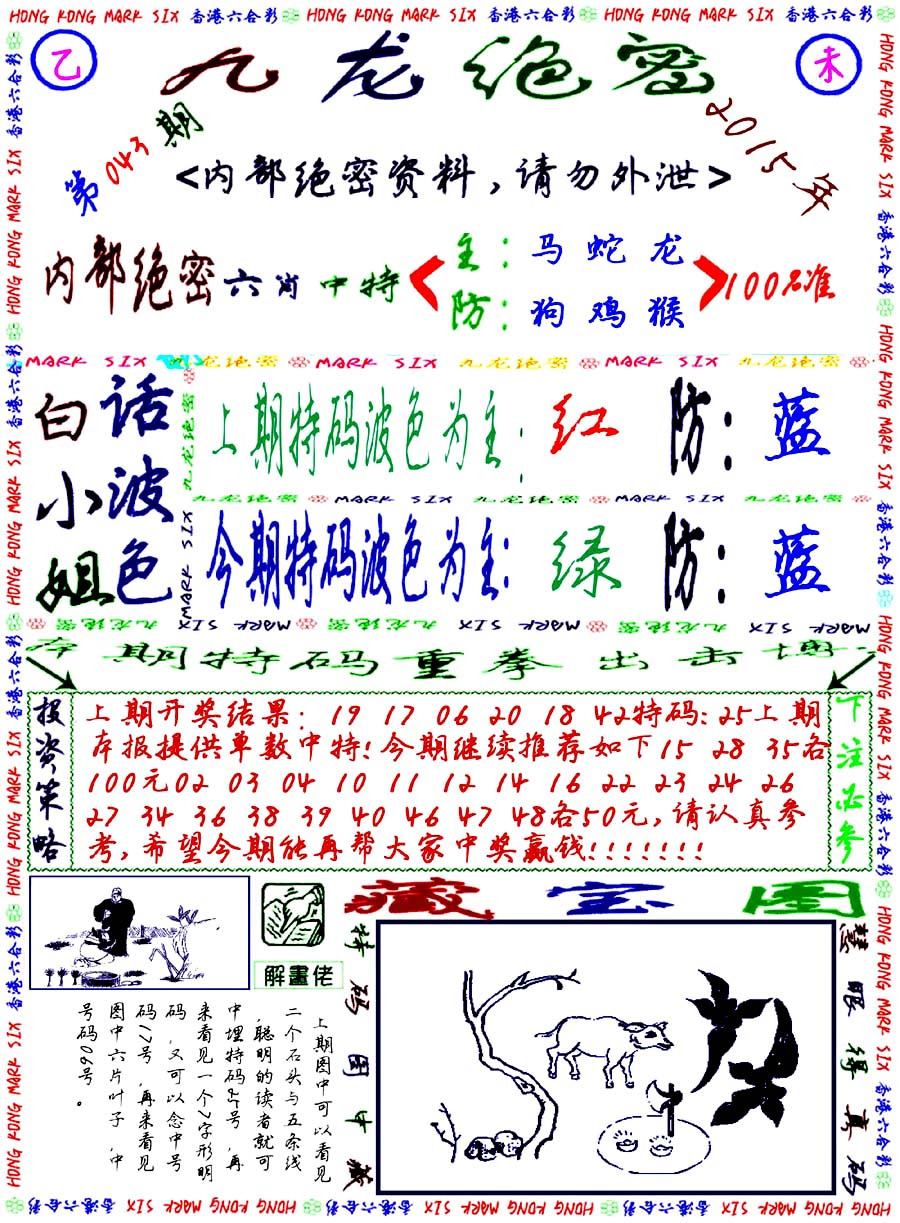 HONG KONG MARK SIX 香港六合彩 HONG KONG MARK SIX 香港六合彩 HONG KONG MARK SIX 香港六合彩
乙 九龙绝密 未
第043期 2015年
<内部绝密资料,请勿外泄>
内部绝密六肖中特
主:马蛇龙
防:狗鸡猴
100%准
MARK SIX 九龙绝密 MARK SIX 九龙绝密 MARK SIX 九龙绝密
白话小波姐色
上期特码波色为主:红 防:蓝
九龙绝密 MARK SIX 九龙绝密 MARK SIX 九龙绝密
今期特码波色为主:绿 防:蓝
九龙绝密 MARK SIX 九龙绝密 MARK SIX 九龙绝密 MARK SIX
本期特码重拳出击博
投资策略
上期开奖结果: 19 17 06 20 18 42特码:25上期
本报提供单数中特!今期继续推荐如下15 28 35各
100元02 03 04 10 11 12 14 16 22 23 24 26
27 34 36 38 39 40 46 47 48各50元,请认真参
考,希望今期能再帮大家中奖赢钱!!!!!!!
下注必参
解畫佬
藏宝图
特码图中藏
慧眼得真码
上期图中可以看见
二个石头与五条线
,聪明的读者就可
中埋特码25号,再
来看见一个7字形明
码,又可以念中号
码17号,再来看见
图中六片叶子,中
号码06号。
HONG KONG MARK SIX 香港六合彩 HONG KONG MARK SIX 香港六合彩 HONG KONG MARK SIX 香港六合彩